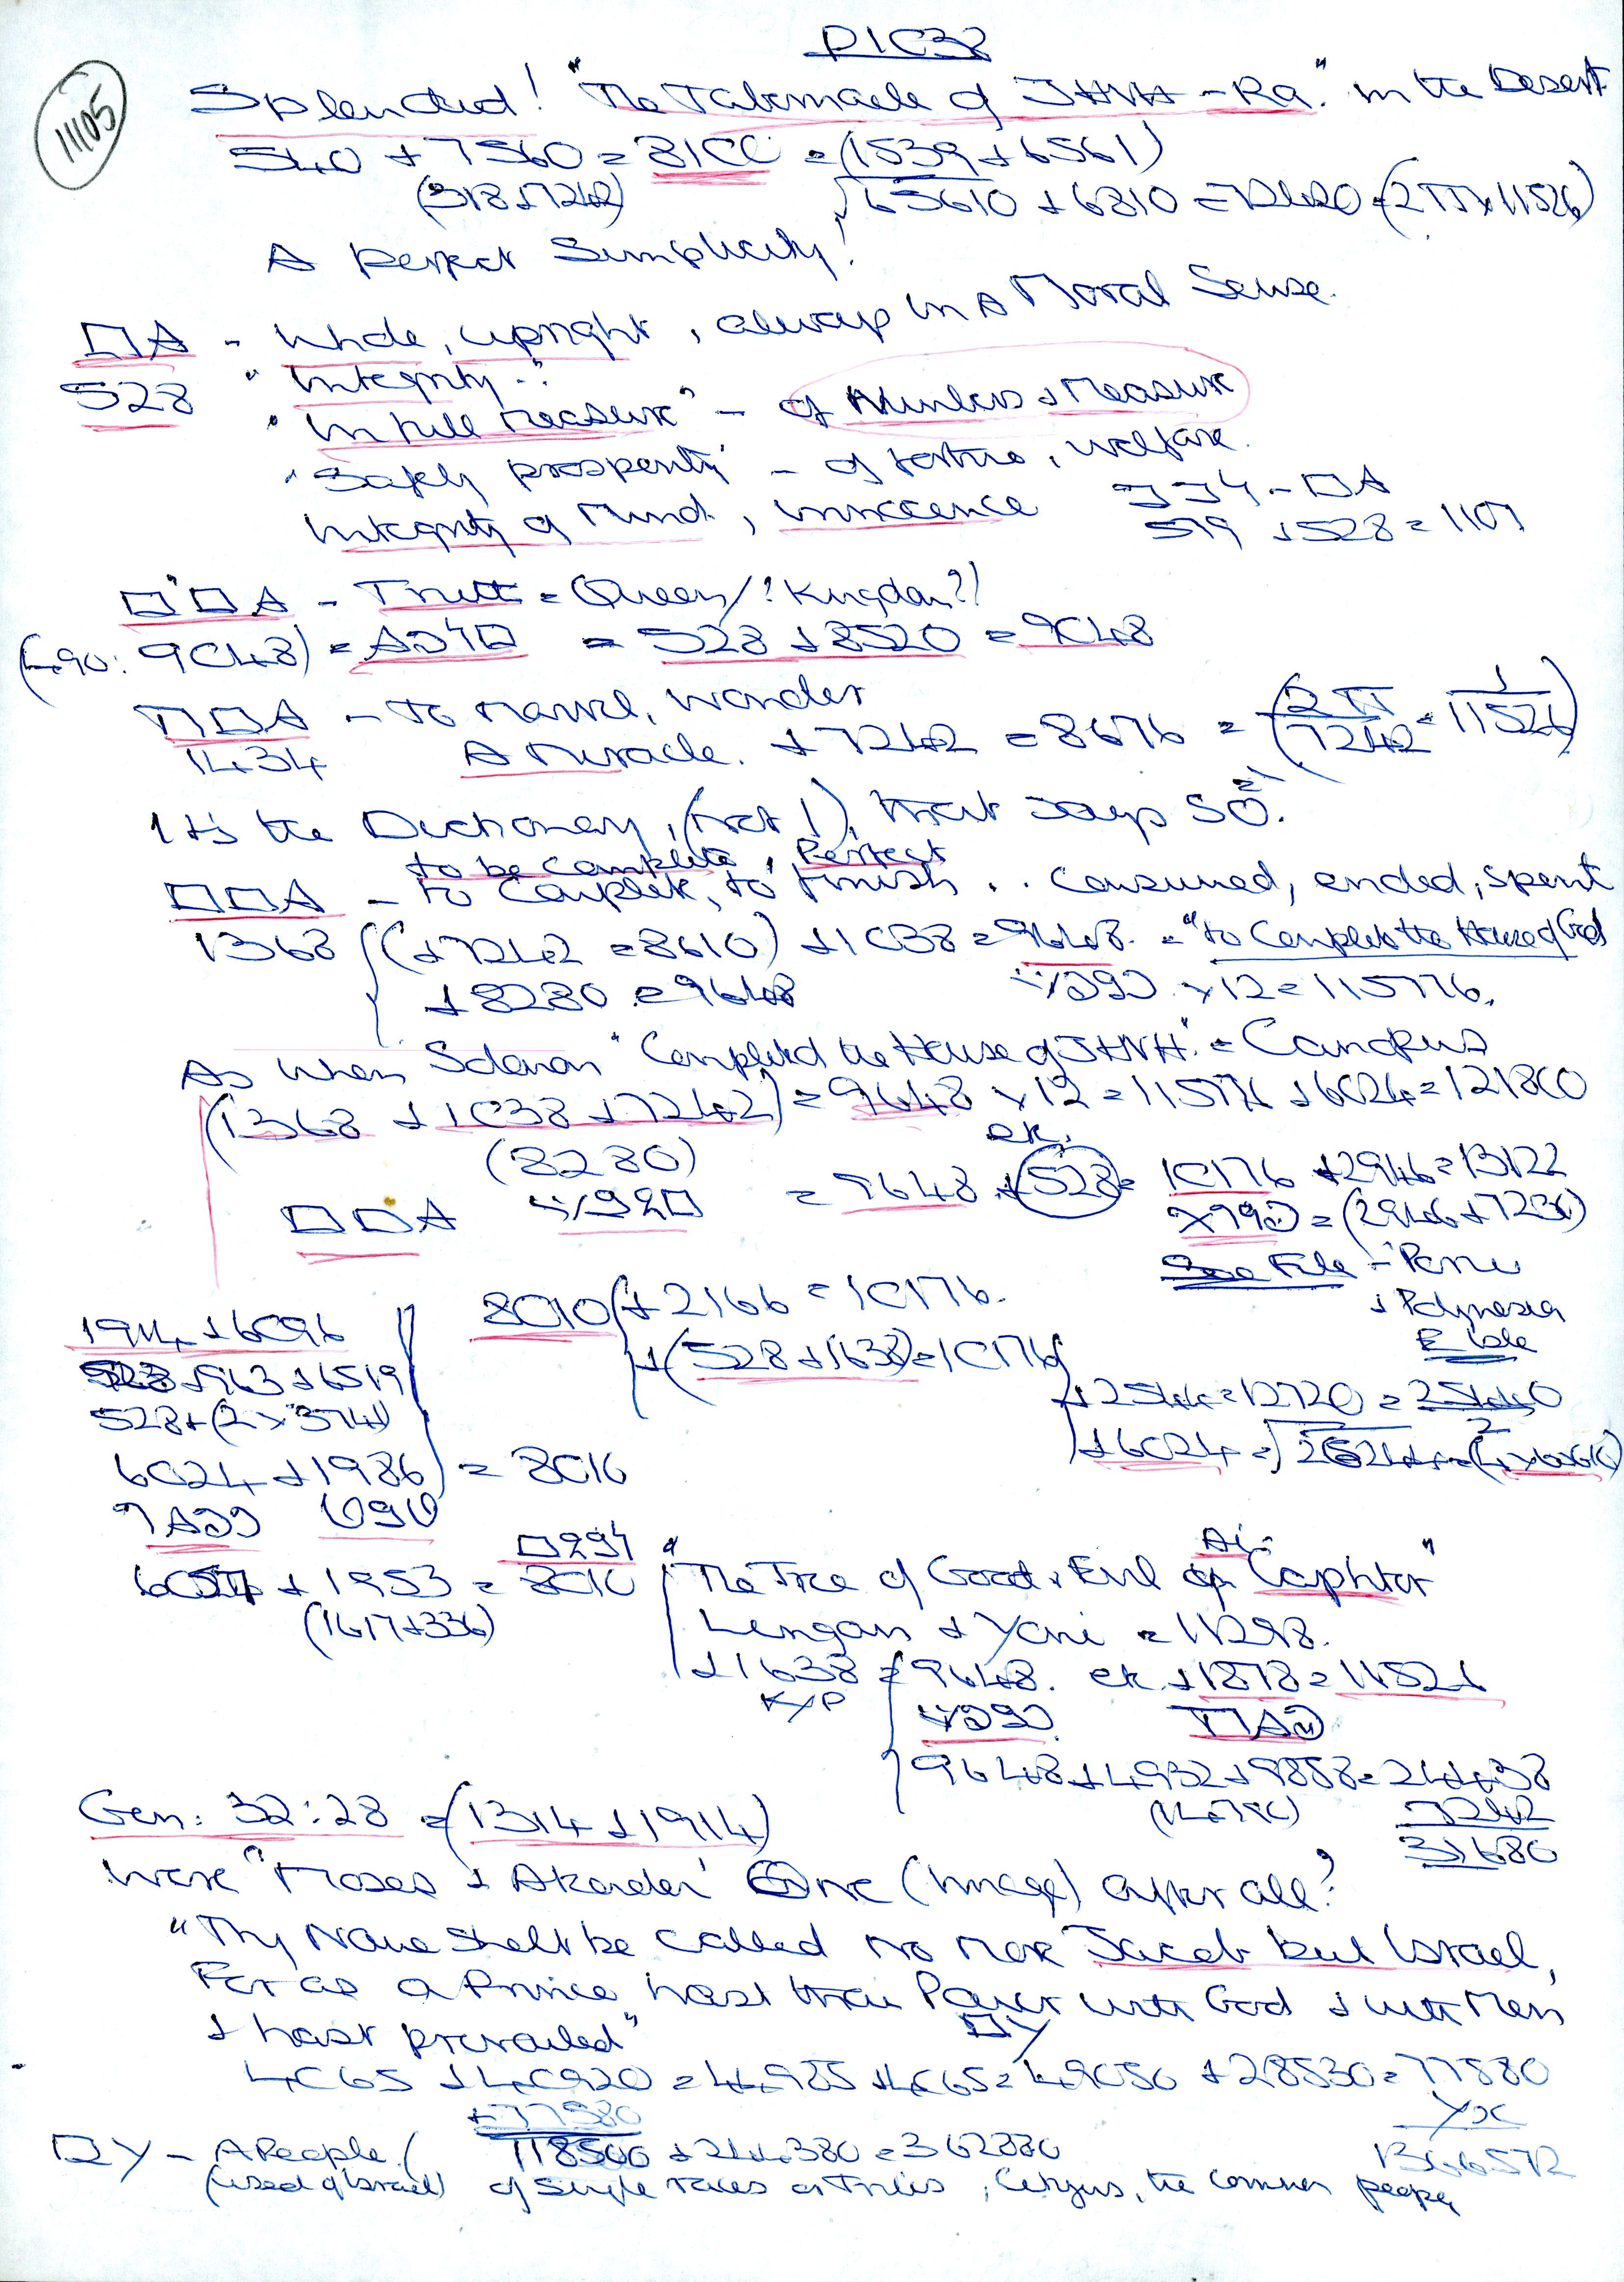 D1C38
11105
Splendid! "The Tabernacle of JHVH - Ra." in the Desert
540 + 7560 = 81CC = (1539 + 6561)
(318 + 7242) √65610 + 6810 = 72420 = (2π × 11526)
A perfect Simplicity!
- Whole, upright, always in a Moral Sense.
528 "Integrity".
"In full measure" - of Numbers & Measure
"Safely prosperity" - of fortune, welfare.
Integrity of Mind, innocence
579 + 528 = 1107
- Truth = Queen/(? Kingdom?)
(490: 9C48) = = 528 + 8520 = 9C48
- to marvel, wonder
1434 A Miracle. + 7242 = 8676 = (2π / 7242 = 1 / 11526)
It's the Dictionary, (not I), that says SO.
to be complete, Perfect
- to Complete, to finish .. consumed, ended, spent
1368 (+ 7242 = 8610) + 1C38 = 9648. = "to Complete the House of God
+ 8280 = 9648 × 12 = 115776.
As when Solomon "Completed the House of JHVH." = Canopus
(1368 + 1C38 + 7242) = 9648 × 12 = 115776 + 6024 = 121800
(8280) ek.
= 9648 + 528 = 1C176 + 2946 = 13122
= (2946 + 7230)
See File - Peru
+ Polynesia
E Isle
1914 + 6096 8C10 + 2166 = 1C176.
528 + 963 + 6519 + (528 + 1638) = 1C176
528 + (2 × 3741) + 2544 = 12720 = 25440
6C24 + 1986 = 8C10
+ 1953 = 8C10 "The Tree of Good & Evil of Ai-Caphtor"
(1617 + 336) Lengan & Yani = 11298.
+ 1638 = 9648. ek. + 1878 = 11526
9648 + 4932 + 9858 = 24438
(14790) 7242
31680
Gen: 32:28 = (1314 + 1914)
Were "Moses & Akander" One (Image) after all?
"Thy Name shall be called no more Jacob but Israel,
For as a Prince hast thou Power with God & with Men
& hast prevailed"
4C65 + 4C920 = 44985 + 4C65 = 49050 + 28530 = 77580
+ 77580
118500 + 244380 = 362880 1366572
- A People (
(used of Israel) of Single races or Tribes, , the common people